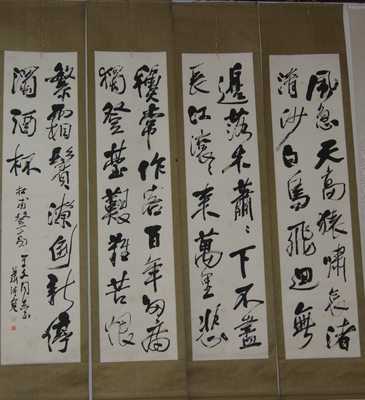 風急天高猿嘯哀渚
清沙白鳥飛迴無
邊落木蕭〻下不盡
長江滾〻來萬里悲
穐常作客百年多病
獨登臺艱難苦恨
繁霜鬢潦倒新停
濁酒杯
杜甫登高
同志